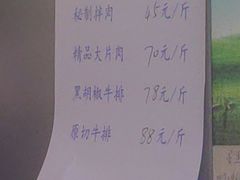 秘制拌肉 45元/斤
精品大片肉 70元/斤
黑胡椒牛排 78元/斤
原切牛排 88元/斤